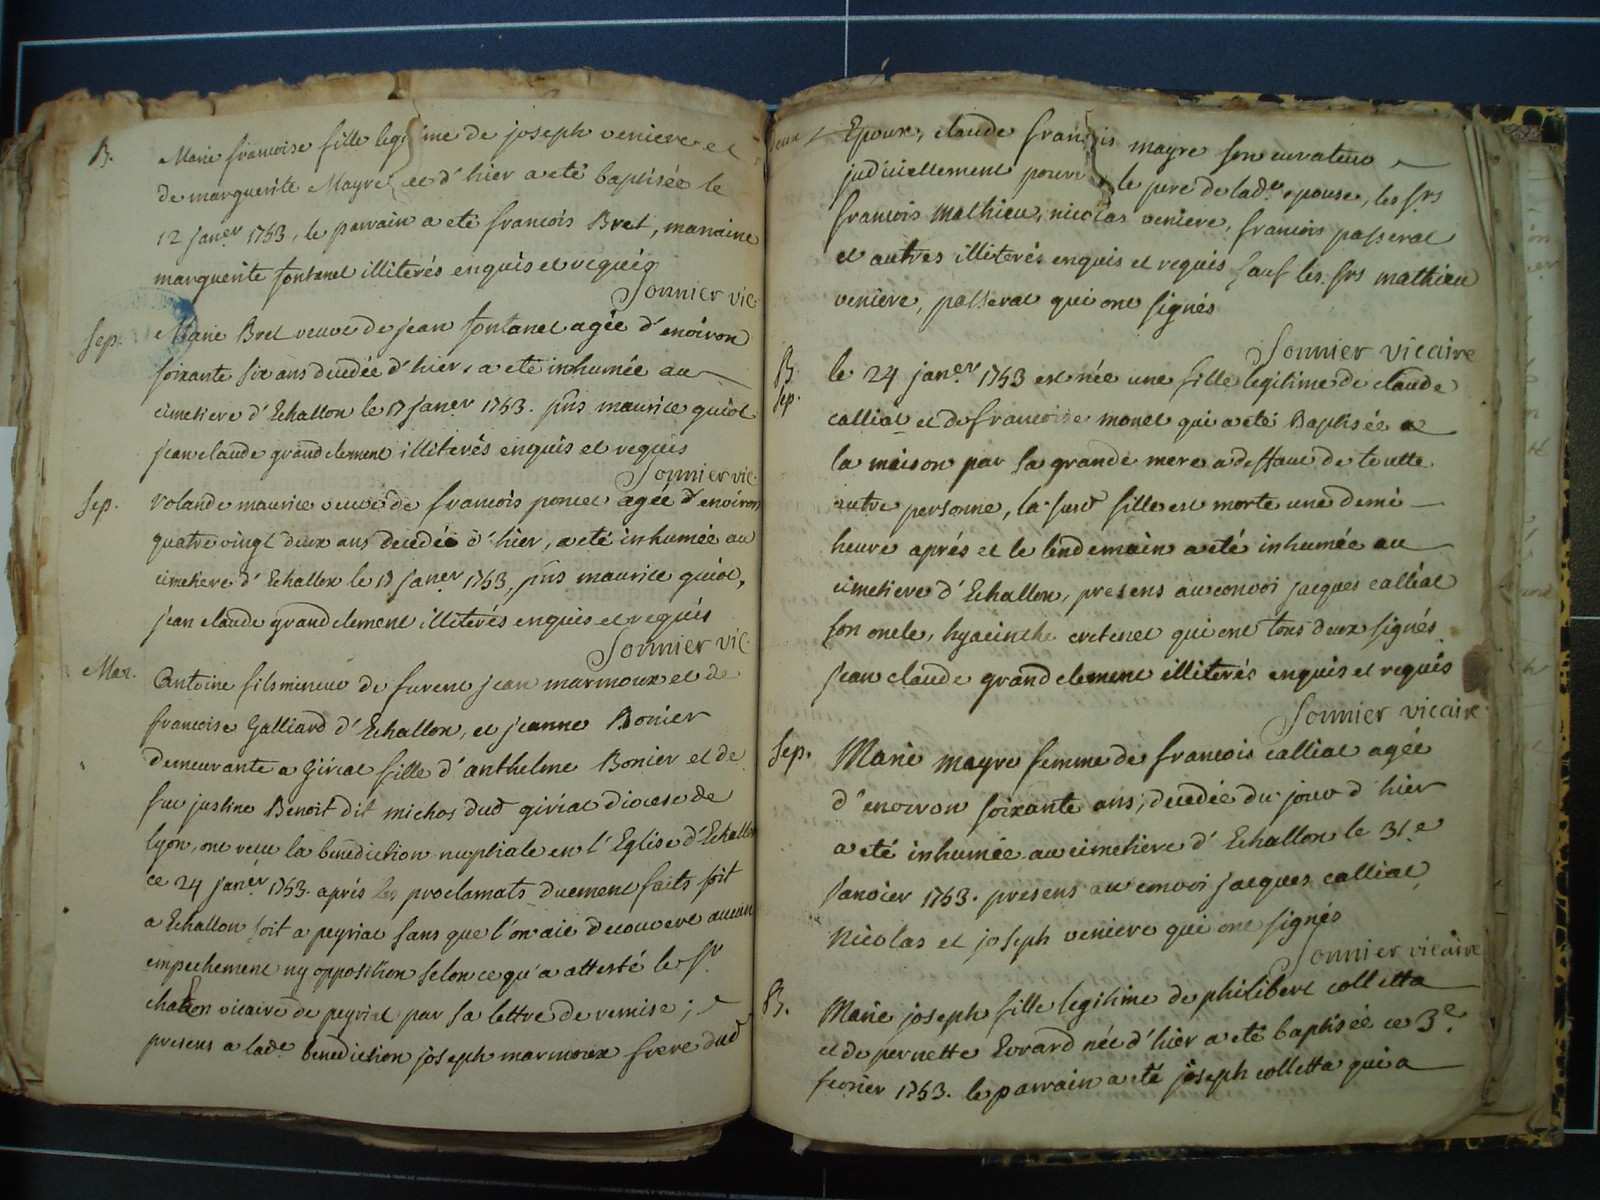 B. Marie francoise fille legitime de joseph veniere et
de marguerite Mayre née d'hier a eté baptisée le
12 janer 1753, le parrain a eté francois Bret, marraine
marguerite fontanel illiterés enquis et requis
Sonnier vic.
Sep. Marie Bret veuve de jean fontanel agée d'environ
soixante six ans decedée d'hier, a eté inhumée au
cimetiere d'Echallon le 17 janer 1753. pns maurice guiot
jean claude grandclement illiterés enquis et requis
Sonnier vic.
Sep. volande maurice veuve de francois poncet agée d'environ
quatre vingt deux ans decedée d'hier, a eté inhumée au
cimetiere d'Echallon le 17 janer 1753, pns maurice guiot,
jean claude grandclement illiterés enquis et requis
Sonnier vic.
Mar. Antoine fils mineur de furent jean marmoux et de
francoise Galliard d'Echallon, et jeanne Bonier
demeurante a Giriat fille d'anthelme Bonier et de
fue justine Benoit dit michos dud giriat diocese de
lyon, ont recu la benediction nuptiale en l'Eglise d'Echallon
ce 24 janer 1753. aprés les proclamats duement faits soit
a Echallon soit a peyriat sans que l'on aie decouvert aucun
empechement ny opposition selon ce qu'a attesté le sr
vicaire de peyriat par sa lettre de remise;
presens a lade benediction joseph marmoux frere dud
Epoux, claude francois mayre son curateur
judiciellement pourvu le pere de lade epouse, les srs
francois Mathieu, nicolas veniere, francois passerat
et autres illiterés enquis et requis sauf les srs mathieu
veniere, passerat qui ont signés
Sonnier vicaire
B. le 24 janer 1753 est née une fille legitime de claude
Sep. calliat et de francoise monet qui a eté Baptisée a
la maison par sa grande mere a deffaut de toutte
autre personne, la susd fille est morte une demi
heure aprés et le lendemain a eté inhumée au
cimetiere d'Echallon, presens au convoi jacques calliat
son oncle, hyacinthe cretenet qui ont tous deux signés
jean claude grandclement illiterés enquis et requis
Sonnier vicaire
Sep. Marie mayre femme de francois calliat agée
d'environ soixante ans, decedée du jour d'hier
a eté inhumée au cimetiere d'Echallon le 31e
Janvier 1753. presens au convoi jacques calliat
Nicolas et joseph veniere qui ont signés
Sonnier vicaire
B. Marie joseph fille legitime de philibert colletta
et de pernette Evrard née d'hier a eté baptisée ce 3e
fevrier 1753. le parrain a eté joseph colletta qui a